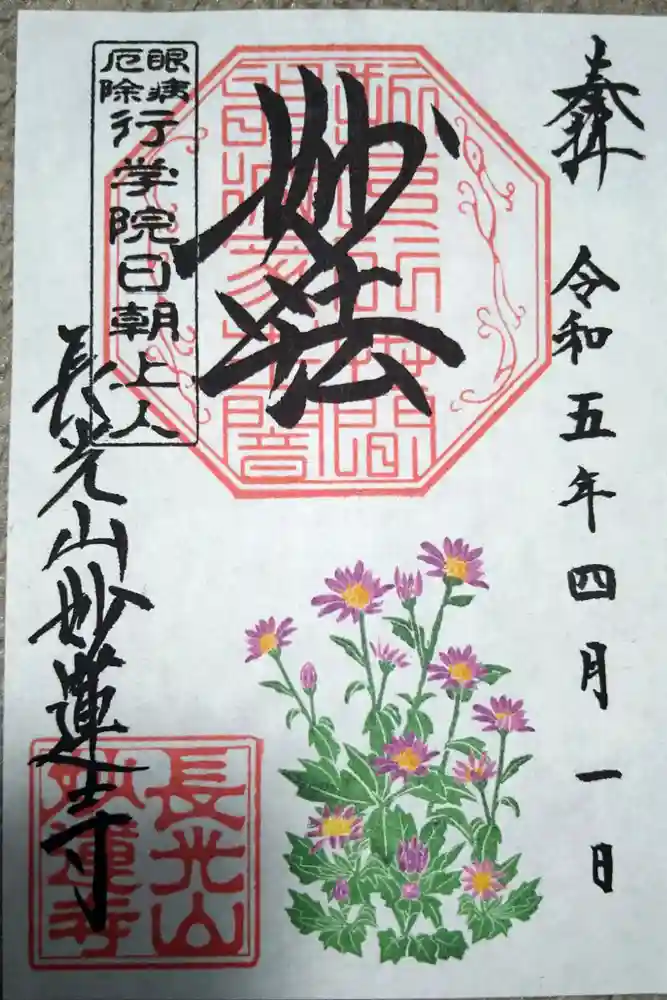 奉拝
令和五年四月一日
妙法
眼病
厄除
行学院日朝上人
長光山妙蓮寺
長光山
妙蓮寺